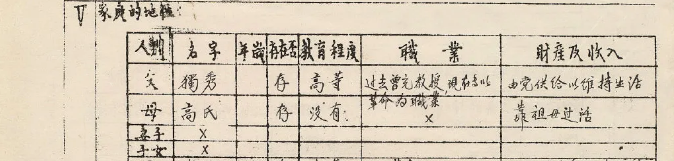 V 家庭的地位：
人别 名字 年龄 存在否 教育程度 職業 財產及收入
父 獨秀 存 高等 过去曾充教授 現在以 由党供给以维持生活
革命为職業
母 高氏 存 没有 × 靠祖母过活
妻子 ×
子女 ×